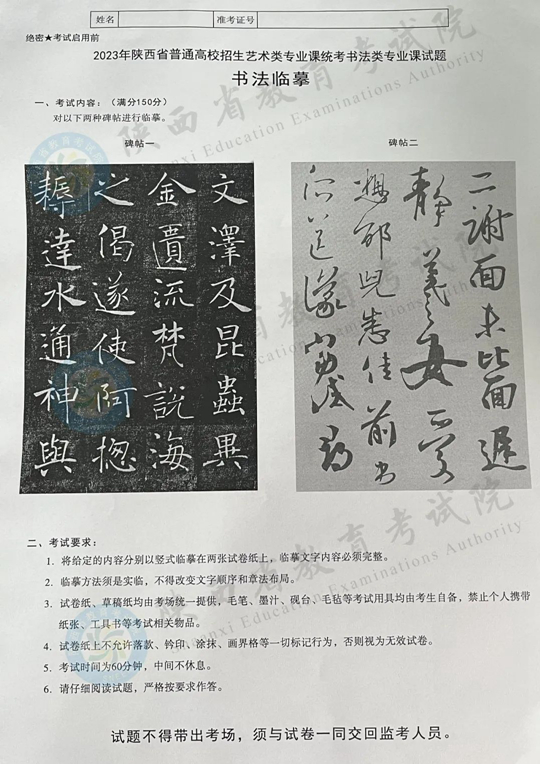 姓名
准考证号
绝密★考试启用前
2023年陕西省普通高校招生艺术类专业课统考书法类专业课试题
书法临摹
一、考试内容：（满分150分）
对以下两种碑帖进行临摹。
碑帖一
碑帖二
文澤及昆蟲異
金遺流梵說海
之偈遂使阿揔
耨達水通神與
二謝面未比面遲
靜羲之女
想邵兒悉佳前
二、考试要求：
1. 将给定的内容分别以竖式临摹在两张试卷纸上，临摹文字内容必须完整。
2. 临摹方法须是实临，不得改变文字顺序和章法布局。
3. 试卷纸、草稿纸均由考场统一提供，毛笔、墨汁、砚台、毛毡等考试用具均由考生自备，禁止个人携带
纸张、工具书等考试相关物品。
4. 试卷纸上不允许落款、钤印、涂抹、画界格等一切标记行为，否则视为无效试卷。
5. 考试时间为60分钟，中间不休息。
6. 请仔细阅读试题，严格按要求作答。
试题不得带出考场，须与试卷一同交回监考人员。
陕西省教育考试院
Shaanxi Education Examinations Authority